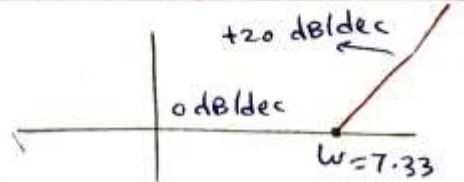 +20 dB/dec
0 dB/dec
W=7.33